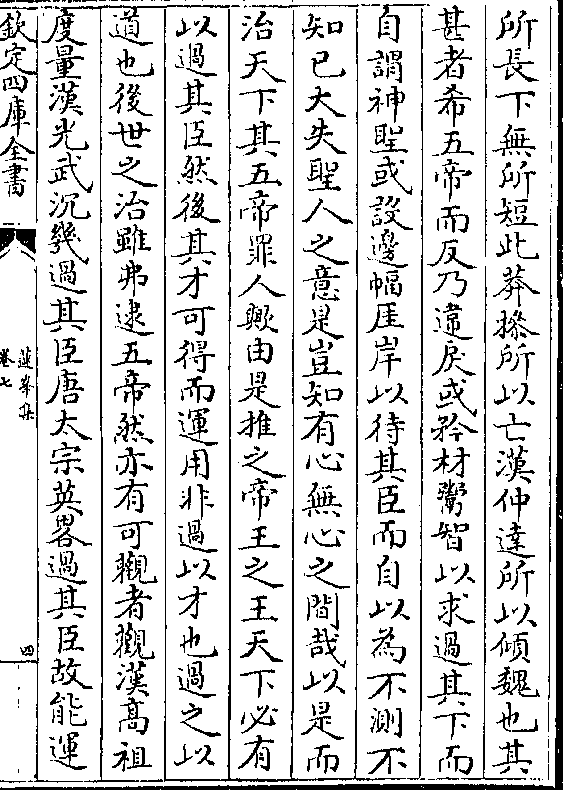 所長下無所短此莽操所以亡漢仲達所以傾魏也其
甚者希五帝而反乃違戾或矜材鬻智以求過其下而
自謂神聖或設邊幅厓岸以待其臣而自以為不測不
知已大失聖人之意是豈知有心無心之間哉以是而
治天下其五帝罪人歟由是推之帝王之王天下必有
以過其臣然後其才可得而運用非過以才也過之以
道也後世之治雖弗逮五帝然亦有可觀者觀漢髙祖
度量漢光武沉幾過其臣唐太宗英畧過其臣故能運
欽定四庫全書
蓮峯集
卷七
四